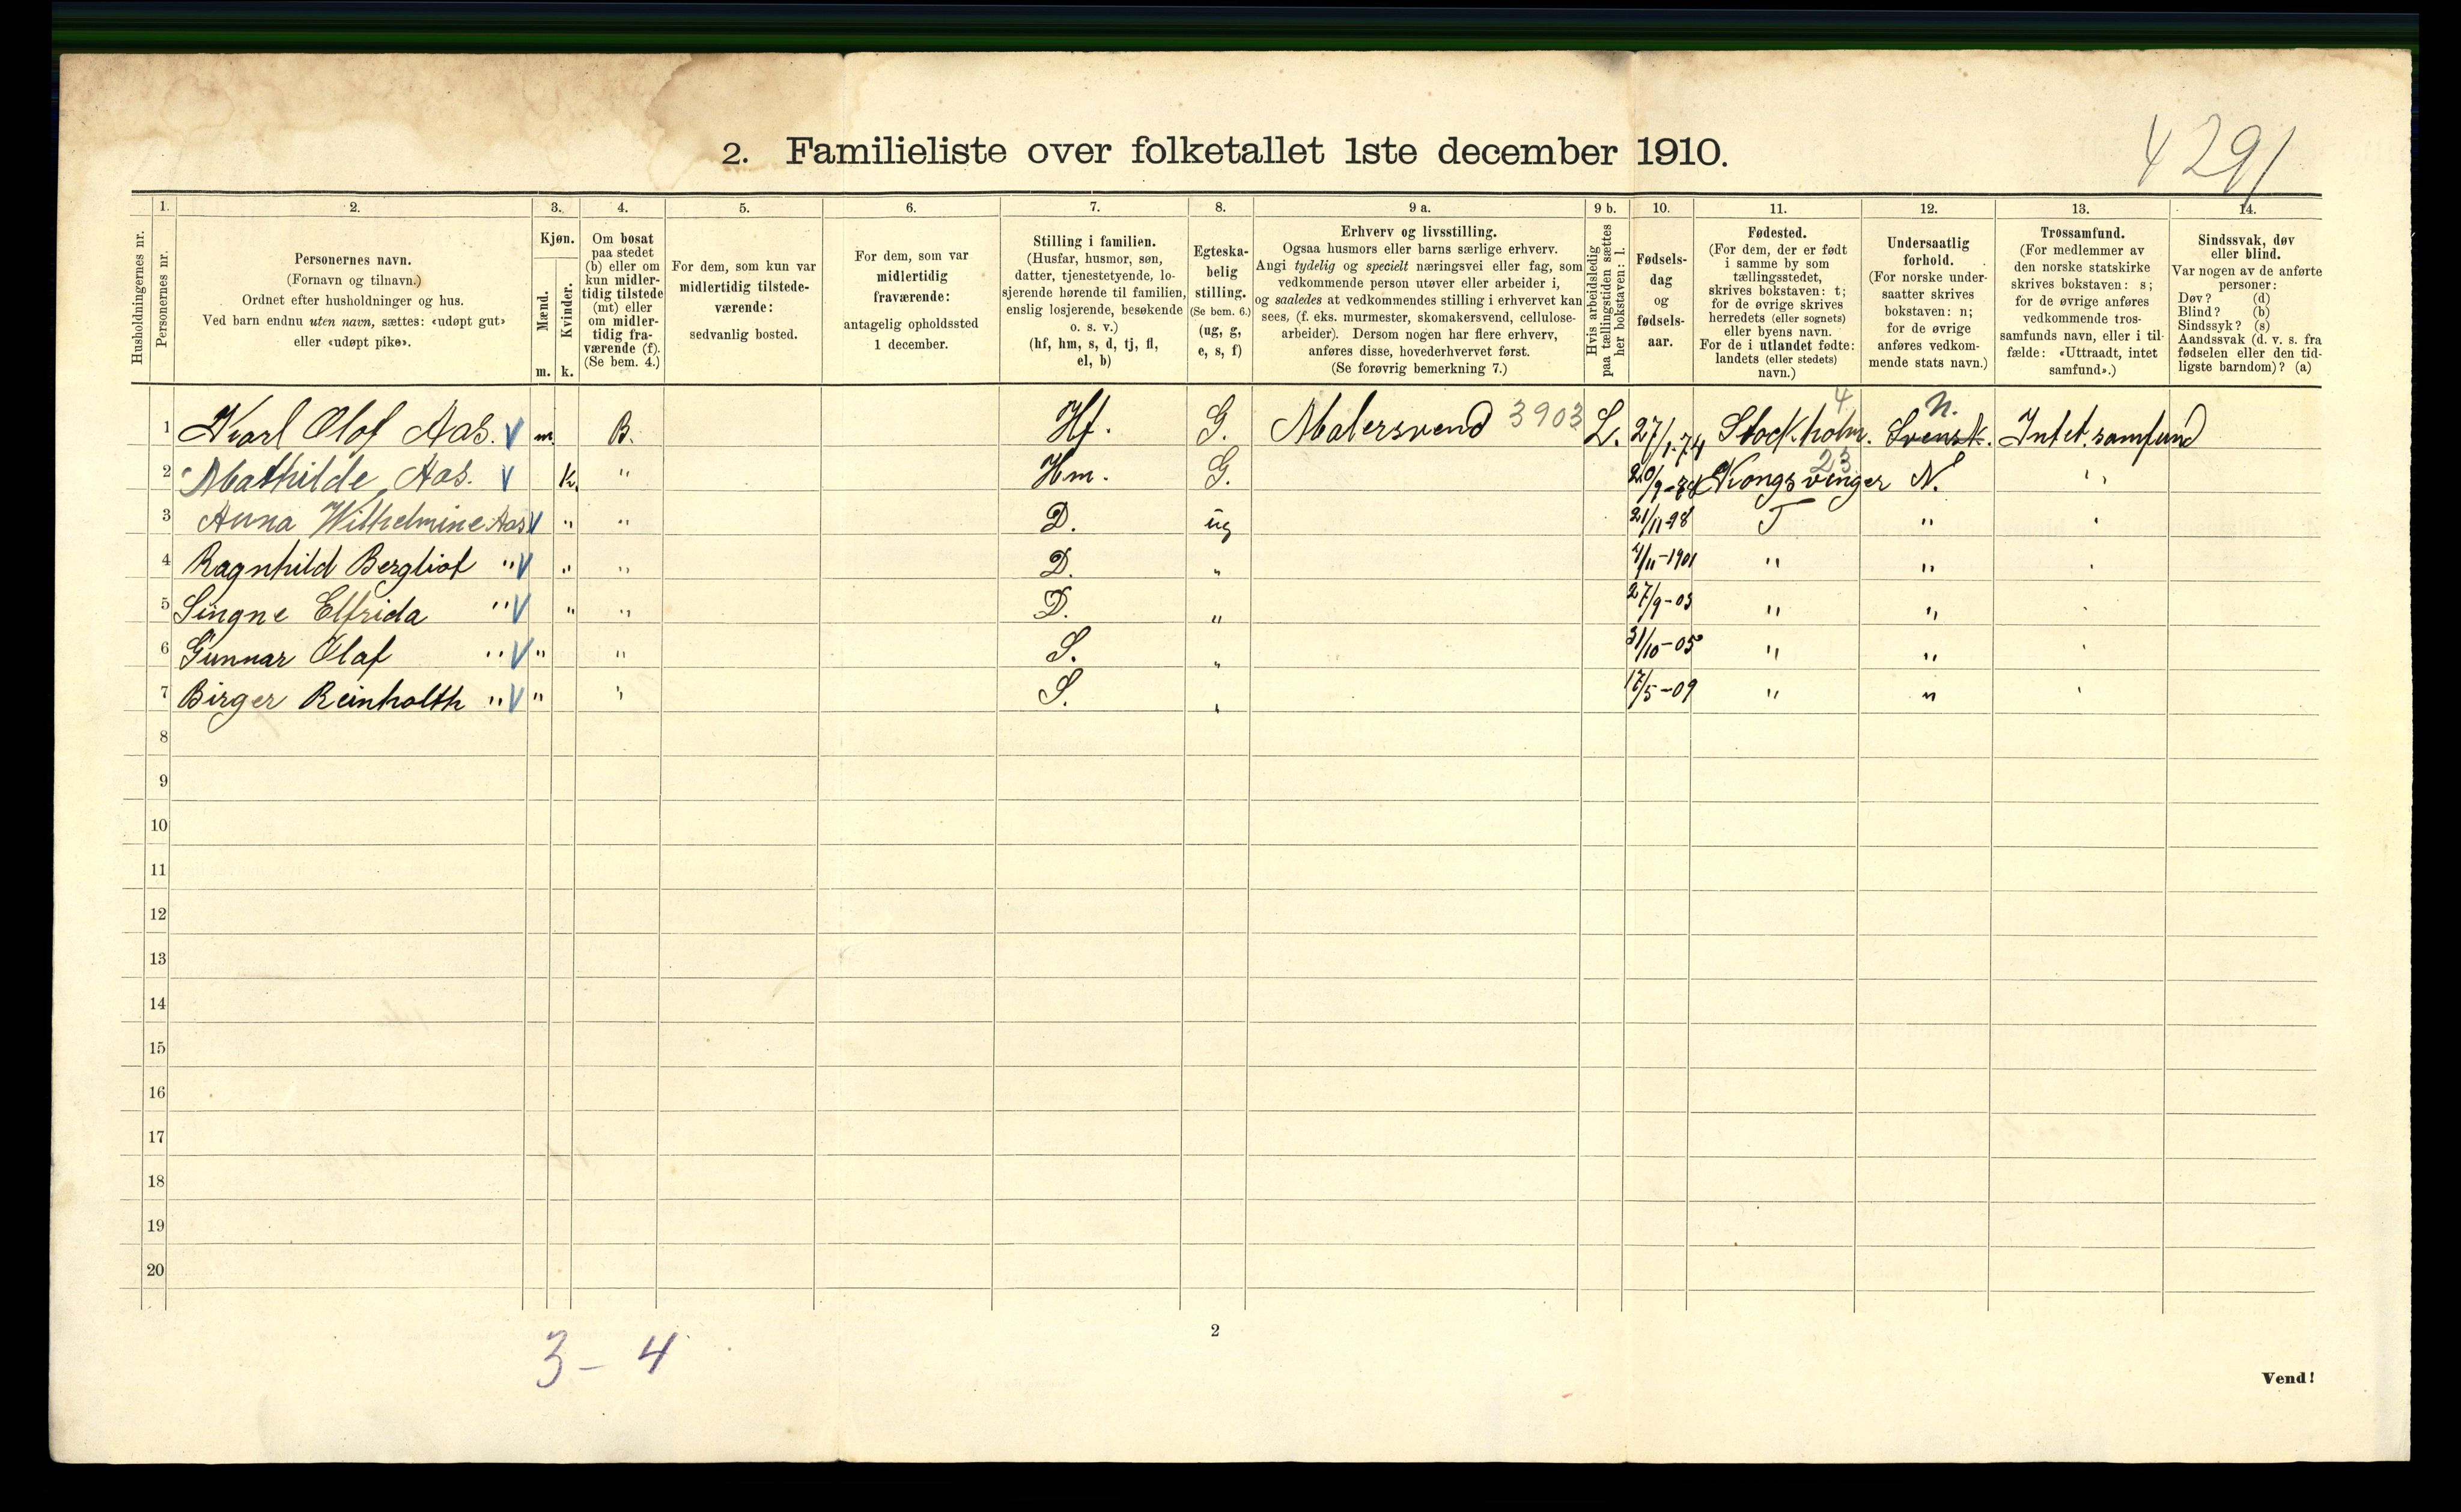 4291
2. Familieliste over folketallet 1ste december 1910.
Husholdningernes nr.
1.
Personernes nr.
2.
Personernes navn.
(Fornavn og tilnavn.)
Ordnet efter husholdninger og hus.
Ved barn endnu uten navn, sættes: «udøpt gut»
eller «udøpt pike».
3.
Kjøn.
Mænd.
m.
Kvinder.
k.
4.
Om bosat
paa stedet
(b) eller om
kun midler-
tidig tilstede
(mt) eller
om midler-
tidig fra-
værende (f).
(Se bem. 4.)
5.
For dem, som kun var
midlertidig tilstede-
værende:
sedvanlig bosted.
6.
For dem, som var
midlertidig
fraværende:
antagelig opholdssted
1 december.
7.
Stilling i familien.
(Husfar, husmor, søn,
datter, tjenestetyende, lo-
sjerende hørende til familien,
enslig losjerende, besøkende
o. s. v.)
(hf, hm, s, d, tj, fl,
el, b)
8.
Egteska-
belig
stilling.
(Se bem. 6.)
(ug, g,
e, s, f)
9 a.
Erhverv og livsstilling.
Ogsaa husmors eller barns særlige erhverv.
Angi tydelig og specielt næringsvei eller fag, som
vedkommende person utøver eller arbeider i,
og saaledes at vedkommendes stilling i erhvervet kan
sees, (f. eks. murmester, skomakersvend, cellulose-
arbeider). Dersom nogen har flere erhverv,
anføres disse, hovederhvervet først.
(Se forøvrig bemerkning 7.)
9 b.
Hvis arbeidsledig
paa tællingstiden sættes
her bokstaven: l.
10.
Fødsels-
dag
og
fødsels-
aar.
11.
Fødested.
(For dem, der er født
i samme by som
tællingsstedet,
skrives bokstaven: t;
for de øvrige skrives
herredets (eller sognets)
eller byens navn.
For de i utlandet fødte:
landets (eller stedets)
navn.)
12.
Undersaatlig
forhold.
(For norske under-
saatter skrives
bokstaven: n;
for de øvrige
anføres vedkom-
mende stats navn.)
13.
Trossamfund.
(For medlemmer av
den norske statskirke
skrives bokstaven: s;
for de øvrige anføres
vedkommende tros-
samfunds navn, eller i til-
fælde: «Uttraadt, intet
samfund».)
14.
Sindssvak, døv
eller blind.
Var nogen av de anførte
personer:
Døv? (d)
Blind? (b)
Sindssyk? (s)
Aandssvak (d. v. s. fra
fødselen eller den tid-
ligste barndom)? (a)
1 Karl Olof Aas. V m. B. Hf. G. Malersvend 3903 L. 27/1-74 Stockholm. 4 Svensk. N. Intet. samfund
2 Mathilde Aas. V K. " Hm. G. 20/9- Kongsvinger 23 N. "
3 Anna Wilhelmine Aas V " " D. ug 21/11-98 T " "
4 Ragnhild Bergliot " V " " D. " 4/11-1901 " " "
5 Singne Elfrida " V " " D. " 27/9-03 " " "
6 Gunnar Olaf " V " " S. " 31/10-05 " " "
7 Birger Reinholth " V " " S. " 17/5-09 " " "
8
9
10
11
12
13
14
15
16
17
18
19
20
3 - 4
2
Vend!